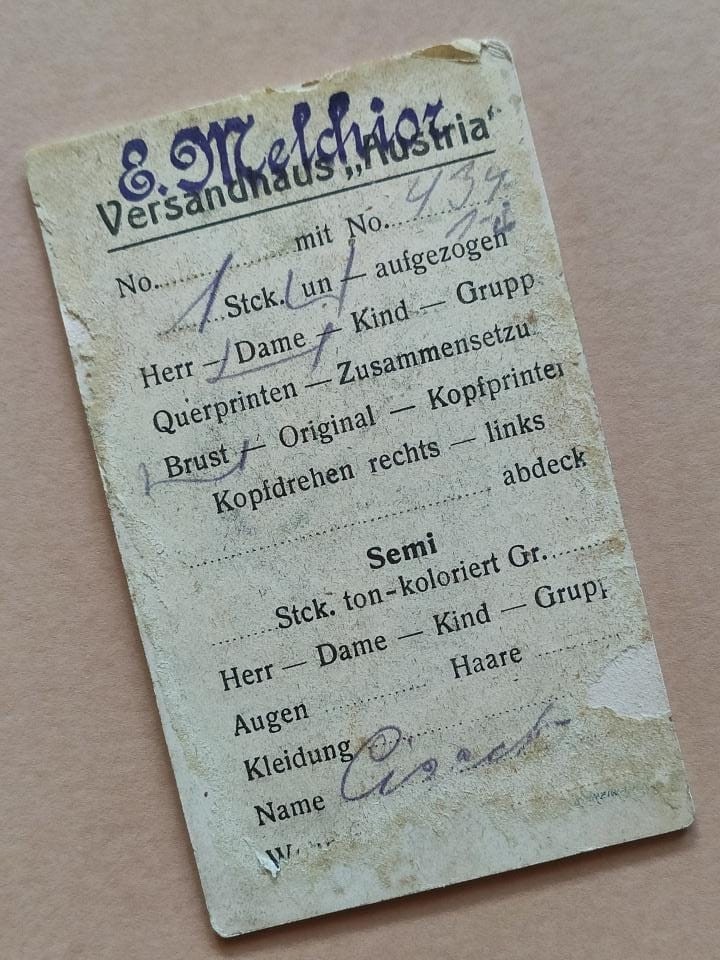 E. Melchior
Versandhaus „Austria“
No. mit No. 434
1 Stck. un — aufgezogen
Herr — Dame — Kind — Grupp
Querprinten — Zusammensetzu
Brust — Original — Kopfprinten
Kopfdrehen rechts — links
abdeck
Semi
Stck. ton-koloriert Gr.
Herr — Dame — Kind — Grupp
Augen Haare
Kleidung
Name